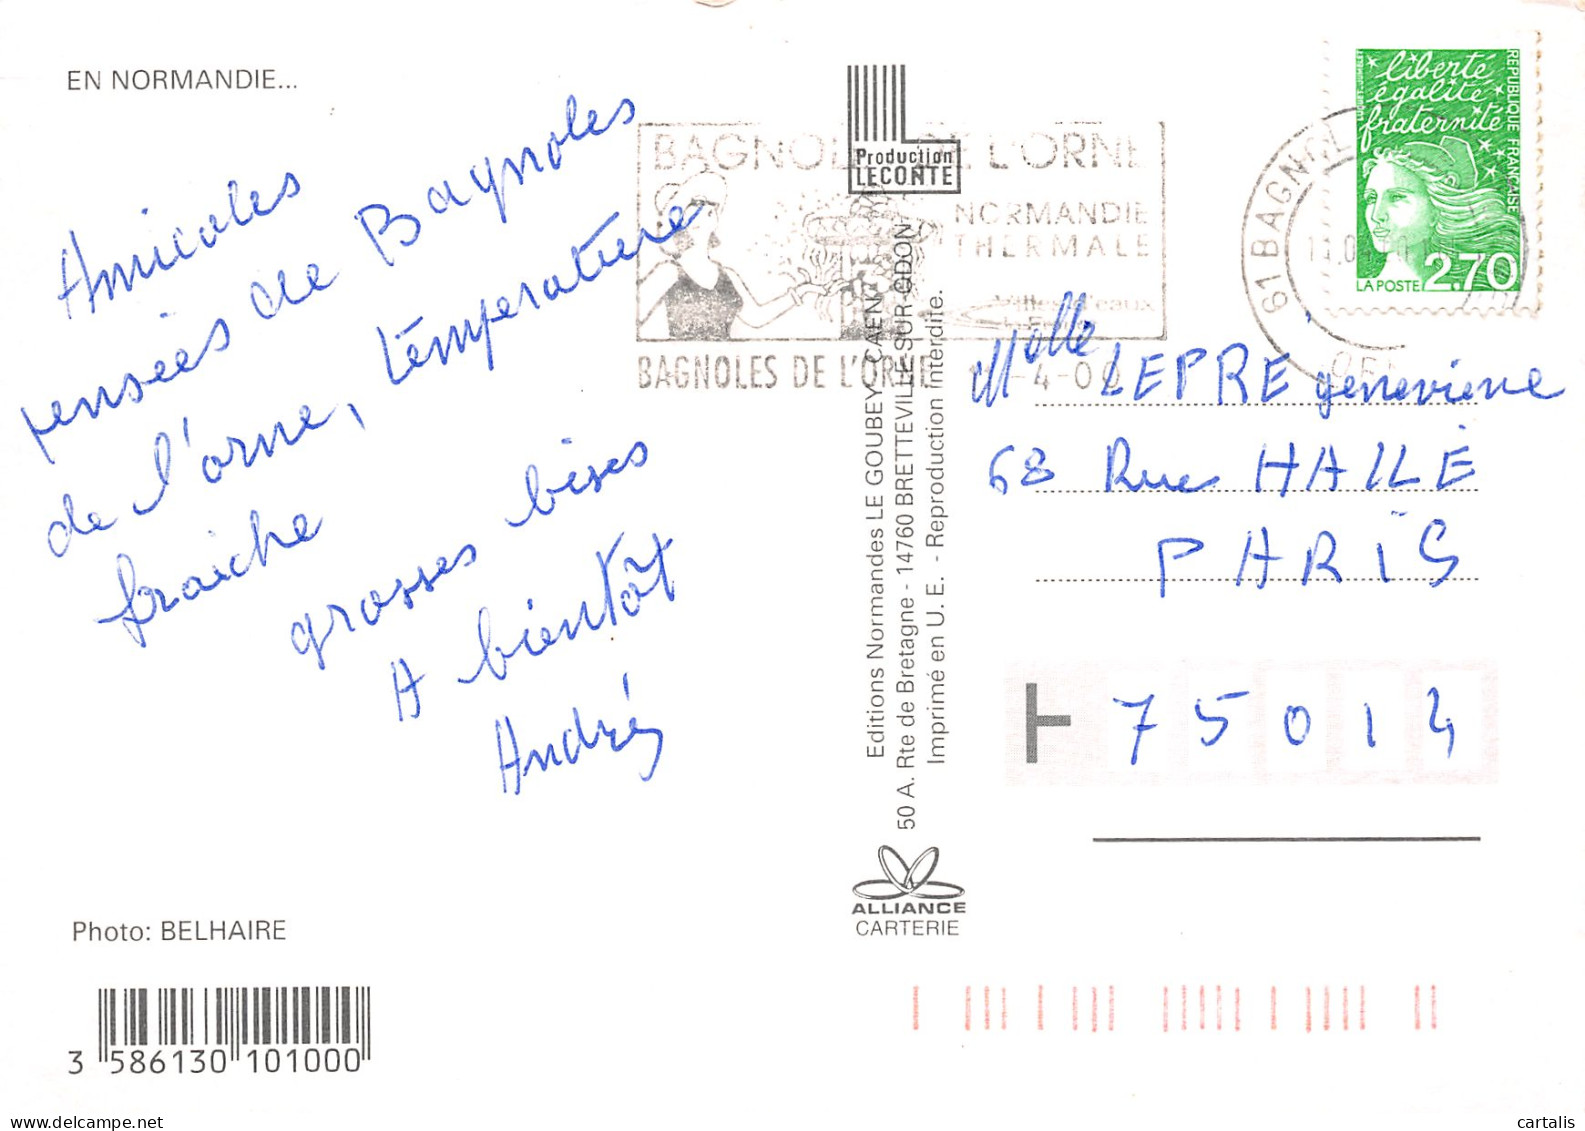 EN NORMANDIE...
Amicales
pensées de Bagnoles
de l'orne, température
fraiche
grosses bises
A bientôt
André
Photo: BELHAIRE
3 586130 101000
Production
LECONTE
Editions Normandes LE GOUBEY CAEN
50 A. Rte de Bretagne - 14760 BRETTEVILLE-SUR-ODON
Imprimé en U. E. - Reproduction interdite.
ALLIANCE
CARTERIE
BAGNOLES DE L'ORNE
NORMANDIE
THERMALE
BAGNOLES DE L'ORNE
-4-00
61 BAGNOL
liberté
égalité
fraternité
REPUBLIQUE FRANÇAISE
LA POSTE 2.70
Melle LEPRÉ geneviève
68 Rue HALLÉ
PARIS
75014
delcampe.net
cartalis